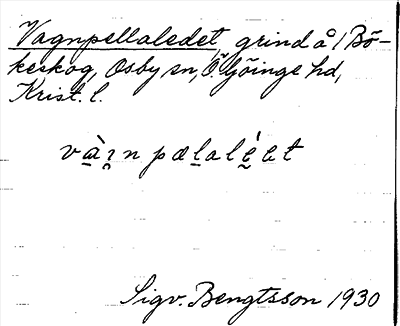 Vagnpellaledet, grind å 1 Bö-
keskog, Osby sn, Ö. Göinge hd,
Krist. l.
Sigv. Bengtsson 1930